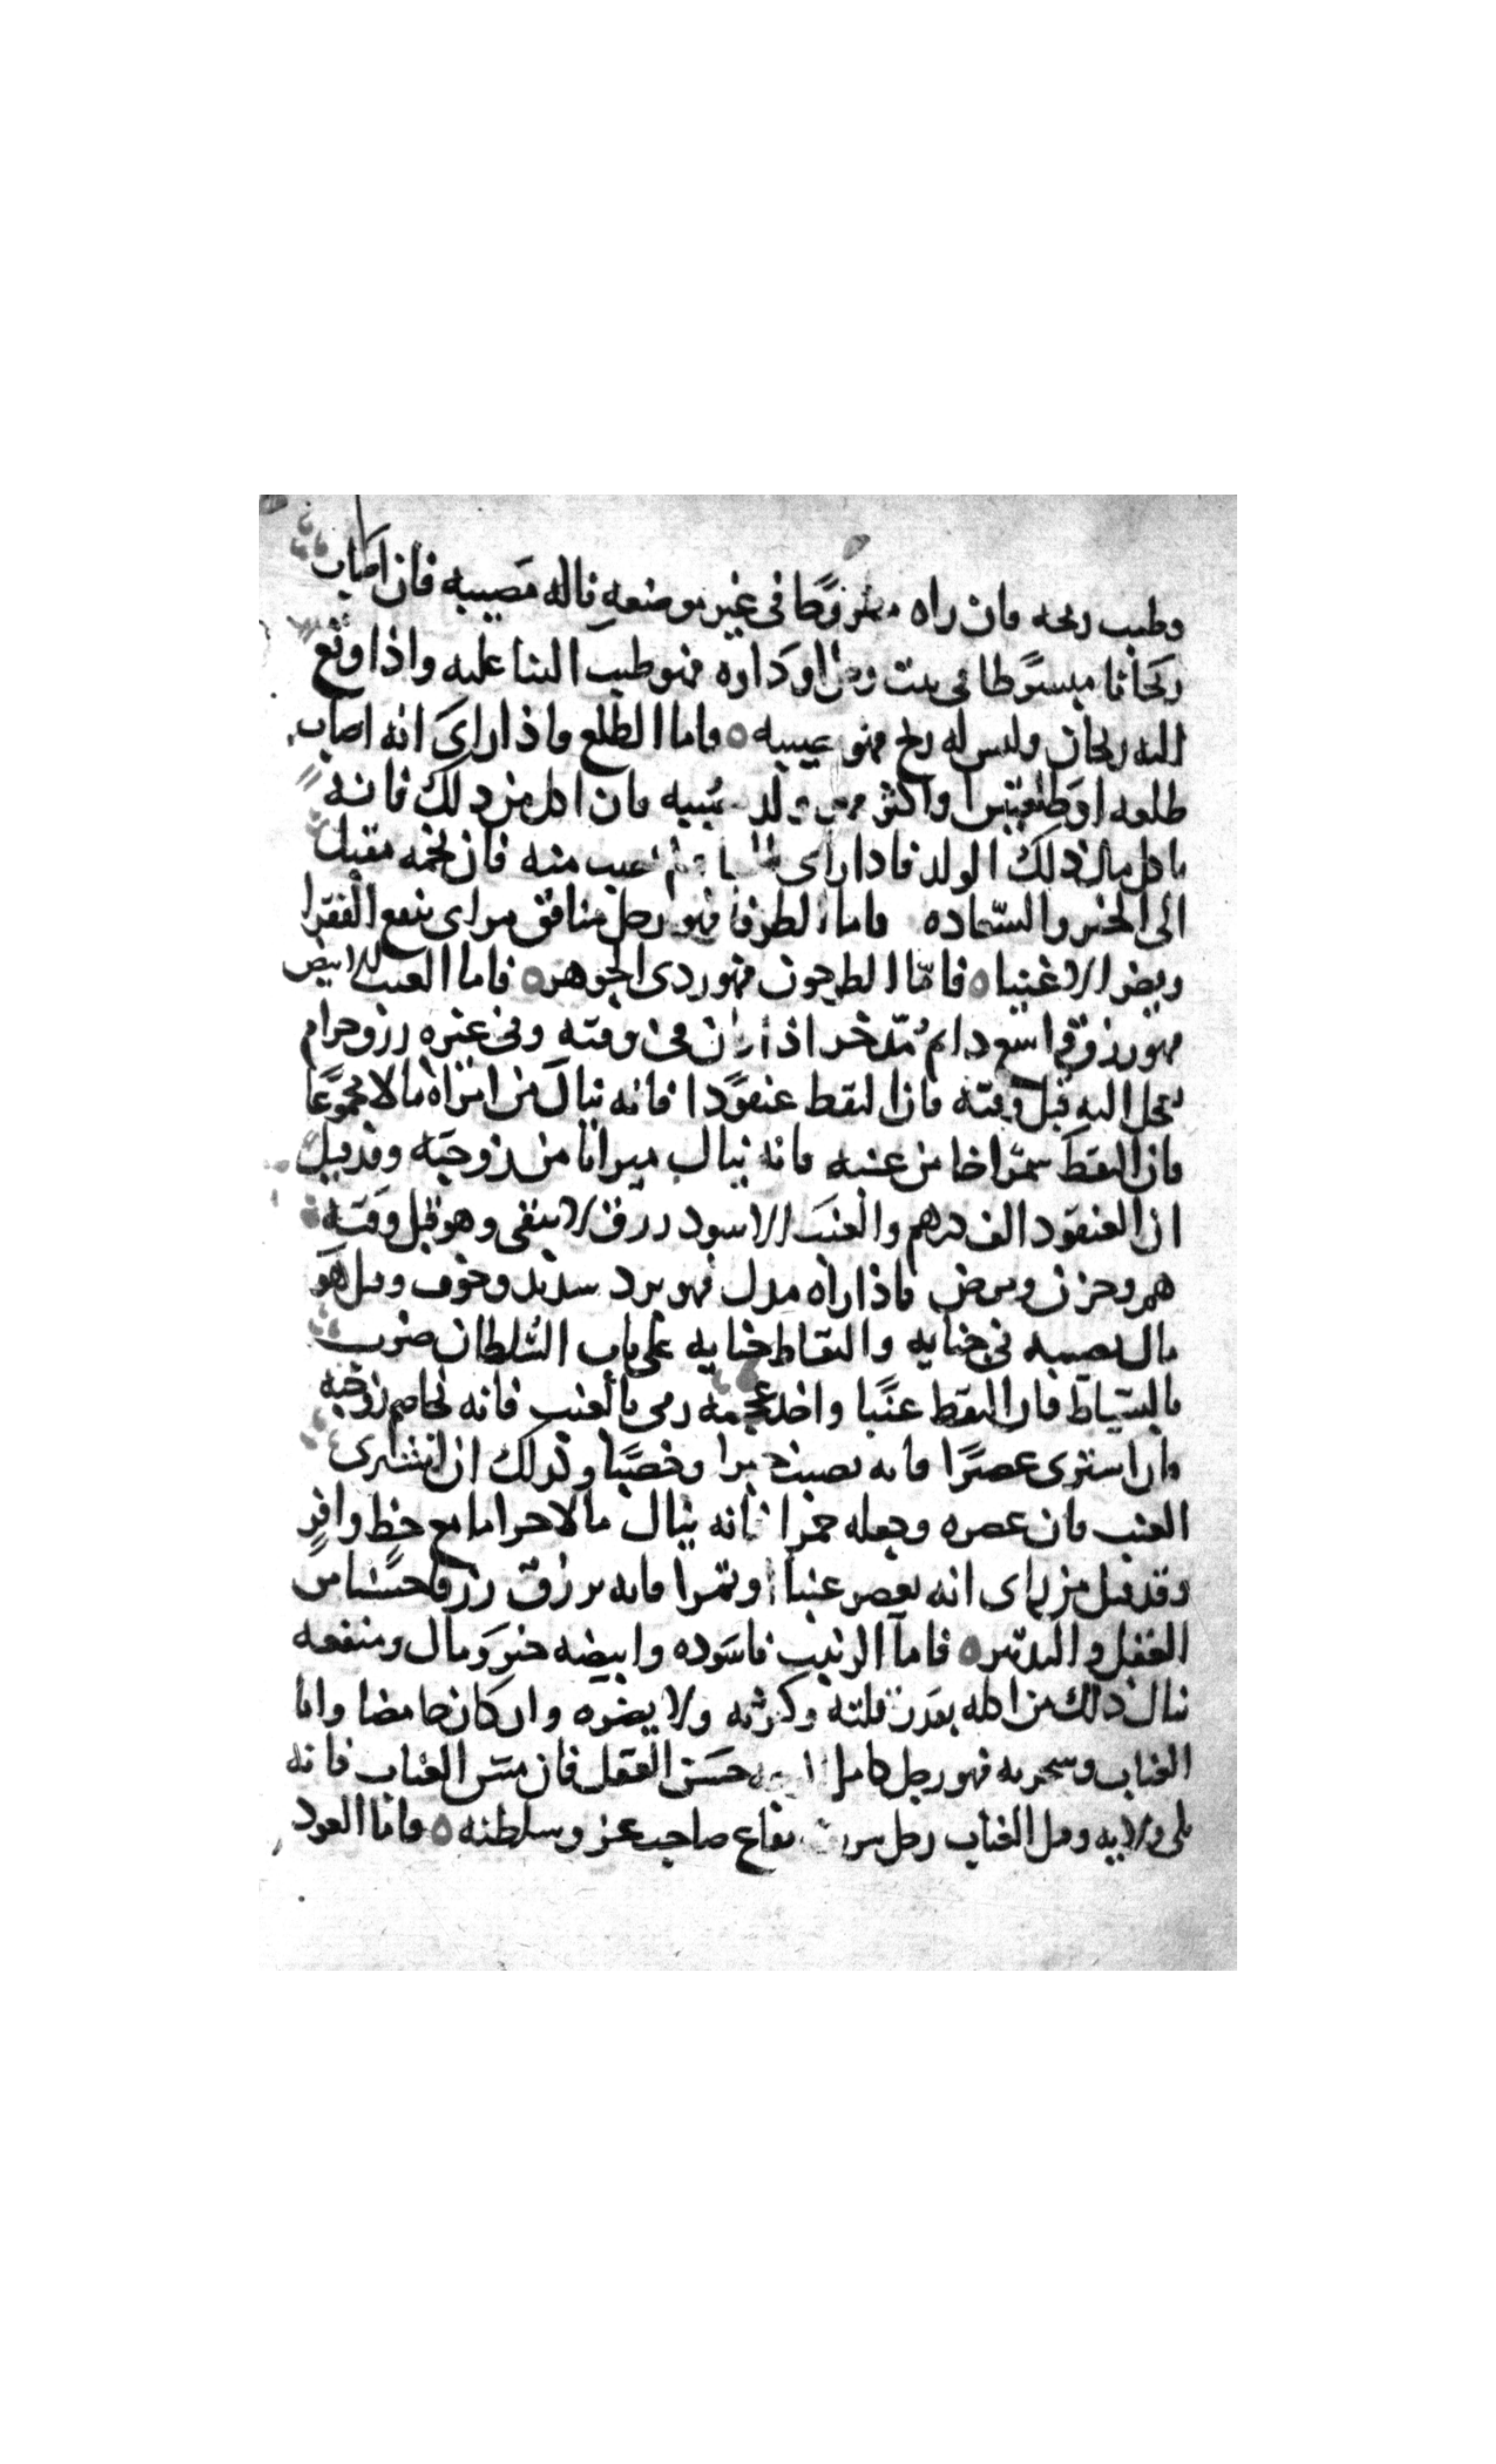 وطيب ريحه فان راه مطروحًا في غير موضعه ناله مصيبه فان اصاب
ريحانا مبسوطا في بيت رجل او داره فهو طيب الثنا عليه واذا وقع
اليه ريحان وليس له ريح فهو عيبه ٥ واما الطلع فاذا راى انه اصاب
طلعه او طلعتين او اكثر فهو ولد يصيبه فان اكل من ذلك فانه
ياكل مال ذلك الولد فاذا راى منه فان نجمه مقبل
الى الخير والسعاده فاما الطرفا فهو رجل منافق مراى ينفع الفقرا
ويضر الاغنيا ٥ فامّا الطرخون فهو ردى الجوهر ٥ فاما العنب الابيض
فهو رزق واسع دايم مُدّخر اذا كان في وقته وفي غيره رزق حرام
يعجل اليه قبل وقته فاذا التقط عنقودًا فانه ينال من امراه مالا مجموعًا
فاذا التقط شمراخا من عنبه فانه ينال ميراثا من زوجته وقد قيل
ان العنقود الف درهم والعنب الاسود رزق لا يبقى وهو قبل وقته
هم وحزن ومرض فاذا راه مدل فهو برد شديد وخوف وقيل هو
مال يصيبه في جنايه والتقاط جنايه على باب السُلطان ضرب
بالسّياط فان التقط عنبًا واخذ عجمه رمى بالعنب فانه يخاصم زوجته
وان اشترى عصيرًا فانه يصيب خيرا وخصبًا وكذلك ان اشترى
العنب فان عصره وجعله خمرا فانه ينال مالا حراما مع حظ وافرٍ
وقد قيل من راى انه يعصر عنبا او تمرا فانه يرزق رزقا حسنًا من
العقل والتدبير ٥ فاما الزبيب فاسوده وابيضه خير ومال ومنفعه
ينال ذلك من اكله بقدر قلته وكثرته ولا يضره وان كان حامضا واما
العناب وشجرته فهو رجل كامل حسن العقل فان مسّ العناب فانه
يلى ولايه وقيل العناب رجل نفاع صاحب عز وسلطنه ٥ واما العود